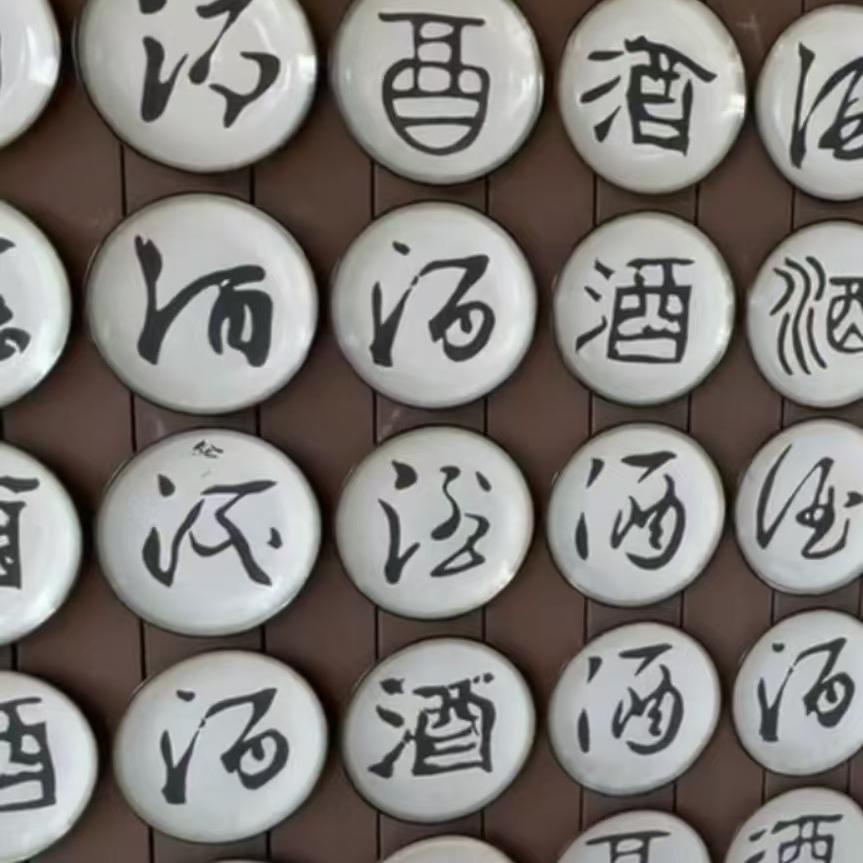 酒 酉 酒 酒
酒 酒 酒 酒
酒 酒 酒 酒
酒 酒 酒 酒 酒
酉 酒